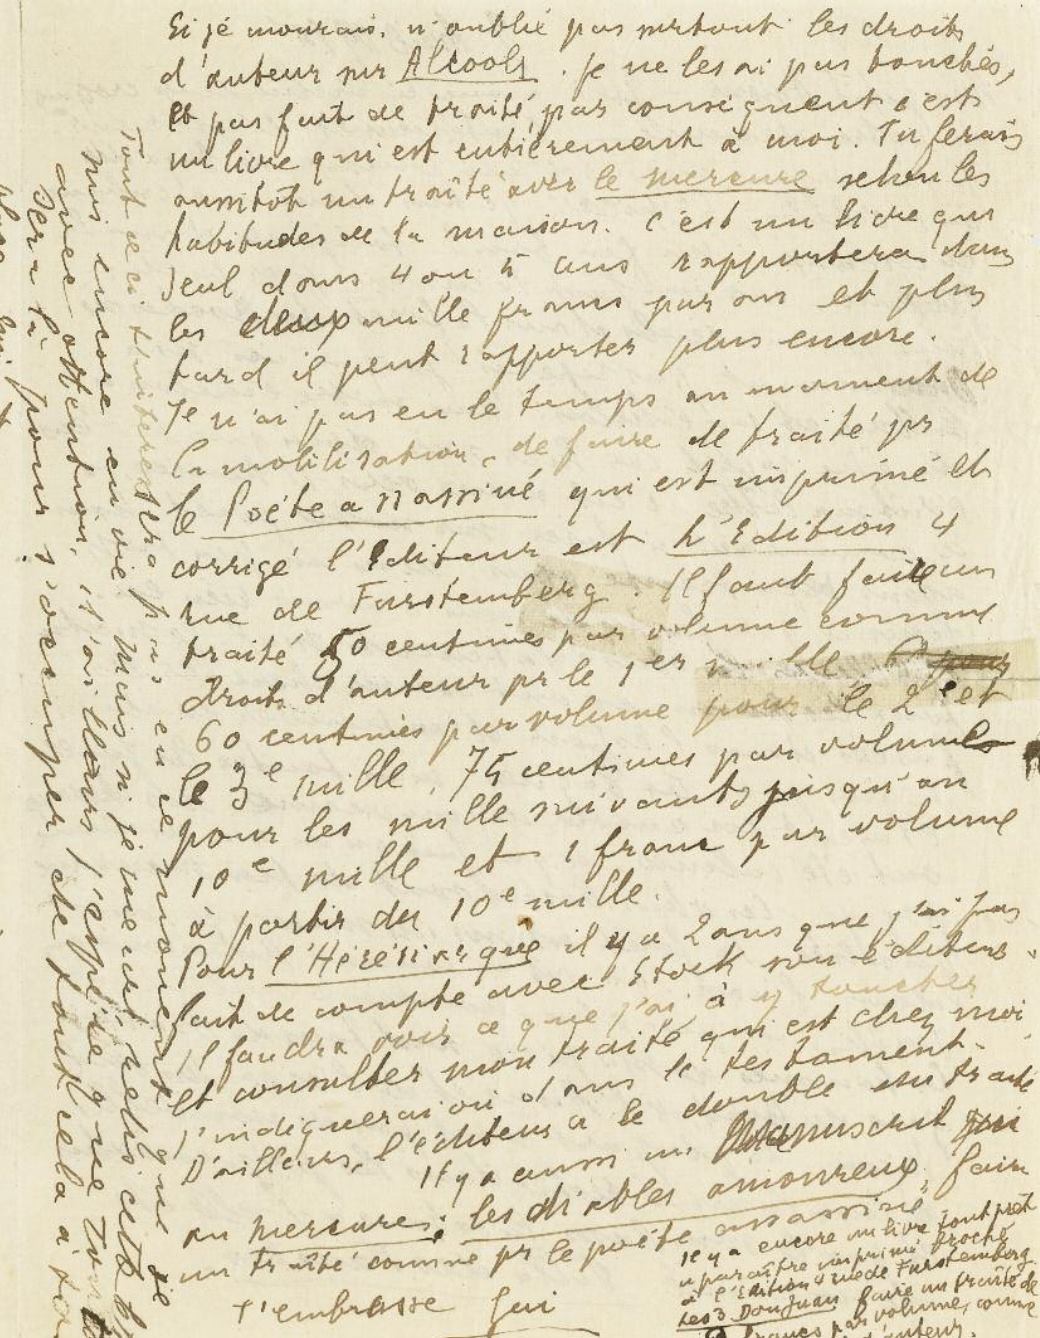 Si je mourais, n'oublie pas surtout les droits
d'auteur sur Alcools. Je ne les ai pas touchés,
et pas fait de traité, par conséquent c'est
un livre qui est entièrement à moi. Tu ferais
aussitôt un traité avec le Mercure selon les
habitudes de la maison. C'est un livre qui
seul dans 4 ou 5 ans rapportera dans
les deux mille francs par an et plus
tard il peut rapporter plus encore.
Je n'ai pas eu le temps au moment de
la mobilisation, de faire de traité pr
le Poète assassiné qui est imprimé et
corrigé l'éditeur est L'Edition 4
rue de Furstemberg. Il faut faire un
traité 50 centimes par volume comme
droits d'auteur pr le 1er mille
60 centimes par volume pour le 2e et
le 3e mille, 75 centimes par volume
pour les mille suivants jusqu'au
10e mille et 1 franc par volume
à partir du 10e mille.
Pour l'Hérésiarque il y a 2 ans que j'ai pas
fait de compte avec Stock son éditeur.
Il faudra voir ce que j'ai à y toucher
et consulter mon traité qui est chez moi
j'indiquerai où dans le testament.
D'ailleurs, l'éditeur a le double du traité
Il y a aussi un Manuscrit
au Mercure: les diables amoureux, faire
un traité comme pr le poète assassiné
T'embrasse Gui
Il y a encore un livre tout prêt
à paraître imprimé broché
à l'Edition 4 rue de Furstemberg
Les 3 Don Juan faire un traité de
francs par volume, comme
d'auteur.
Tout ceci t'intéressera pas en ce moment que je
suis encore en vie mais si je meurs relis cette
avec attention, d'ailleurs j'espère que
sera là pour s'occuper de tout cela à